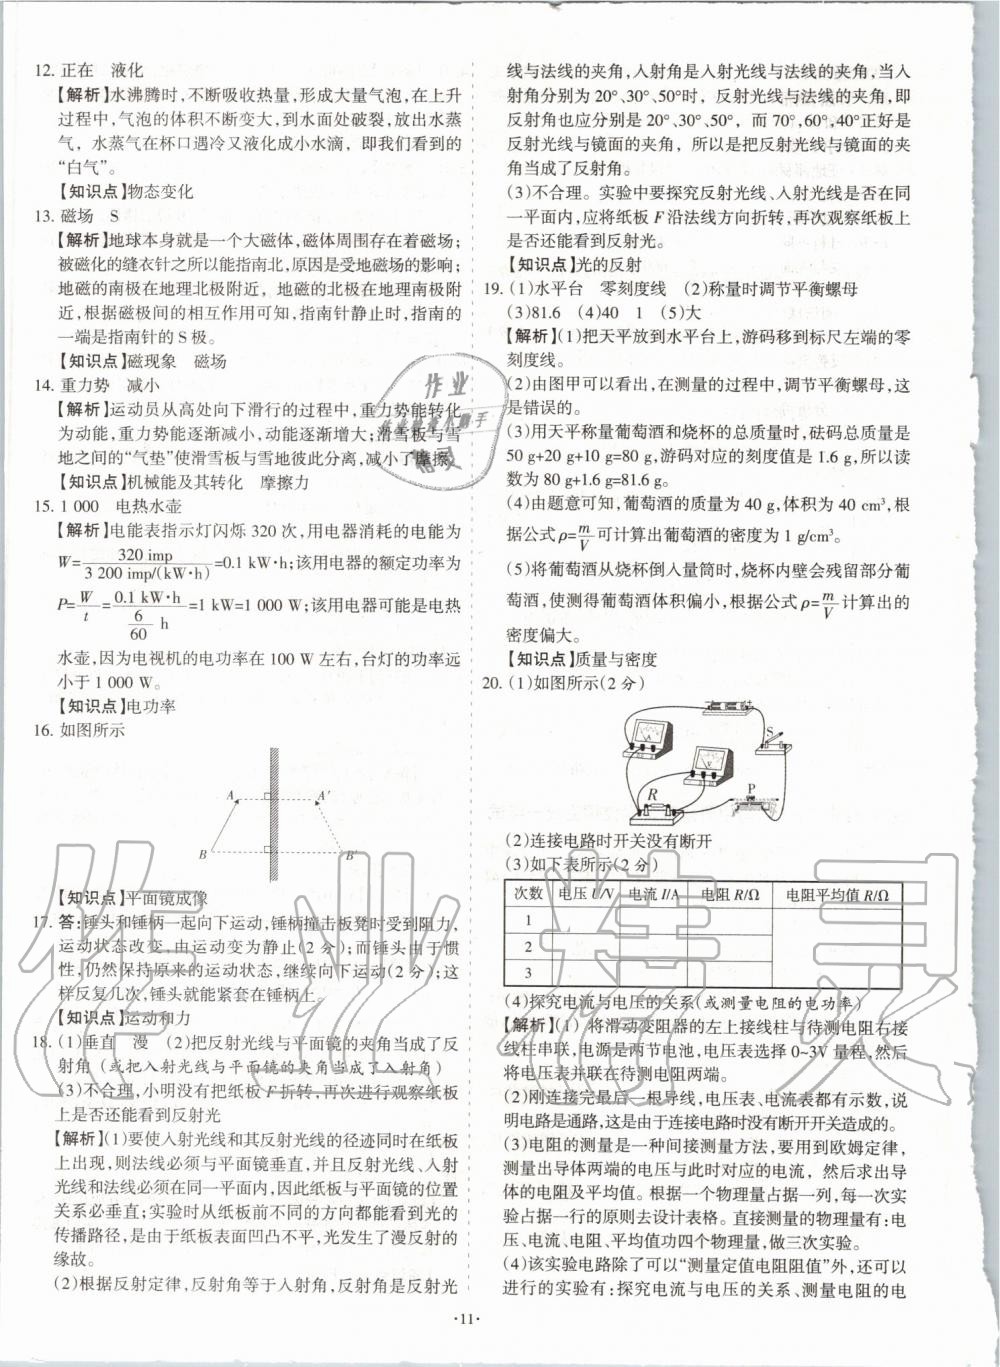 12. 正在　液化
【解析】水沸腾时,不断吸收热量,形成大量气泡,在上升
过程中,气泡的体积不断变大,到水面处破裂,放出水蒸
气，水蒸气在杯口遇冷又液化成小水滴，即我们看到的
“白气”。
【知识点】物态变化
13. 磁场　S
【解析】地球本身就是一个大磁体,磁体周围存在着磁场;
被磁化的缝衣针之所以能指南北,原因是受地磁场的影响;
地磁的南极在地理北极附近，地磁的北极在地理南极附
近,根据磁极间的相互作用可知,指南针静止时,指南的
一端是指南针的 S 极。
【知识点】磁现象　磁场
14. 重力势　减小
【解析】运动员从高处向下滑行的过程中,重力势能转化
为动能,重力势能逐渐减小,动能逐渐增大;滑雪板与雪
地之间的“气垫”使滑雪板与雪地彼此分离,减小了摩擦。
【知识点】机械能及其转化　摩擦力
15. 1 000　电热水壶
【解析】电能表指示灯闪烁 320 次,用电器消耗的电能为
W=320 imp/3 200 imp/(kW·h)=0.1 kW·h;该用电器的额定功率为
P=W/t=0.1 kW·h/(6/60 h)=1 kW=1 000 W;该用电器可能是电热
水壶,因为电视机的电功率在 100 W 左右,台灯的功率远
小于 1 000 W。
【知识点】电功率
16. 如图所示
A A′
B B′
【知识点】平面镜成像
17. 答:锤头和锤柄一起向下运动,锤柄撞击板凳时受到阻力,
运动状态改变,由运动变为静止(2 分);而锤头由于惯
性,仍然保持原来的运动状态,继续向下运动(2 分);这
样反复几次,锤头就能紧套在锤柄上。
【知识点】运动和力
18. (1)垂直　漫　(2)把反射光线与平面镜的夹角当成了反
射角（或把入射光线与平面镜的夹角当成了入射角）
(3)不合理,小明没有把纸板 F 折转,再次进行观察纸板
上是否还能看到反射光
【解析】(1)要使入射光线和其反射光线的径迹同时在纸板
上出现,则法线必须与平面镜垂直,并且反射光线、入射
光线和法线必须在同一平面内,因此纸板与平面镜的位置
关系必垂直;实验时从纸板前不同的方向都能看到光的
传播路径,是由于纸板表面凹凸不平,光发生了漫反射的
缘故。
(2)根据反射定律,反射角等于入射角,反射角是反射光
线与法线的夹角,入射角是入射光线与法线的夹角,当入
射角分别为 20°、30°、50°时，反射光线与法线的夹角,即
反射角也应分别是 20°、30°、50°，而 70°,60°,40°正好是
反射光线与镜面的夹角，所以是把反射光线与镜面的夹
角当成了反射角。
(3)不合理。实验中要探究反射光线、入射光线是否在同
一平面内,应将纸板 F 沿法线方向折转,再次观察纸板上
是否还能看到反射光。
【知识点】光的反射
19. (1)水平台　零刻度线　(2)称量时调节平衡螺母
(3)81.6　(4)40　1　(5)大
【解析】(1)把天平放到水平台上,游码移到标尺左端的零
刻度线。
(2)由图甲可以看出,在测量的过程中,调节平衡螺母,这
是错误的。
(3)用天平称量葡萄酒和烧杯的总质量时,砝码总质量是
50 g+20 g+10 g=80 g,游码对应的刻度值是 1.6 g,所以读
数为 80 g+1.6 g=81.6 g。
(4)由题意可知,葡萄酒的质量为 40 g,体积为 40 cm³,根
据公式 ρ=m/V 可计算出葡萄酒的密度为 1 g/cm³。
(5)将葡萄酒从烧杯倒入量筒时,烧杯内壁会残留部分葡
萄酒,使测得葡萄酒体积偏小,根据公式 ρ=m/V 计算出的
密度偏大。
【知识点】质量与密度
20. (1)如图所示(2 分)
A V S R P
(2)连接电路时开关没有断开
(3)如下表所示(2 分)
次数　电压 U/V　电流 I/A　电阻 R/Ω　电阻平均值 R/Ω
1
2
3
(4)探究电流与电压的关系(或测量电阻的电功率)
【解析】(1) 将滑动变阻器的左上接线柱与待测电阻右接
线柱串联,电源是两节电池,电压表选择 0~3V 量程,然后
将电压表并联在待测电阻两端。
(2)刚连接完最后一根导线,电压表、电流表都有示数,说
明电路是通路,这是由于连接电路时没有断开开关造成的。
(3)电阻的测量是一种间接测量方法,要用到欧姆定律,
测量出导体两端的电压与此时对应的电流，然后求出导
体的电阻及平均值。根据一个物理量占据一列,每一次实
验占据一行的原则去设计表格。直接测量的物理量有:电
压、电流、电阻、平均值功四个物理量,做三次实验。
(4)该实验电路除了可以“测量定值电阻阻值”外,还可以
进行的实验有:探究电流与电压的关系、测量电阻的电
·11·
作业
作业精灵